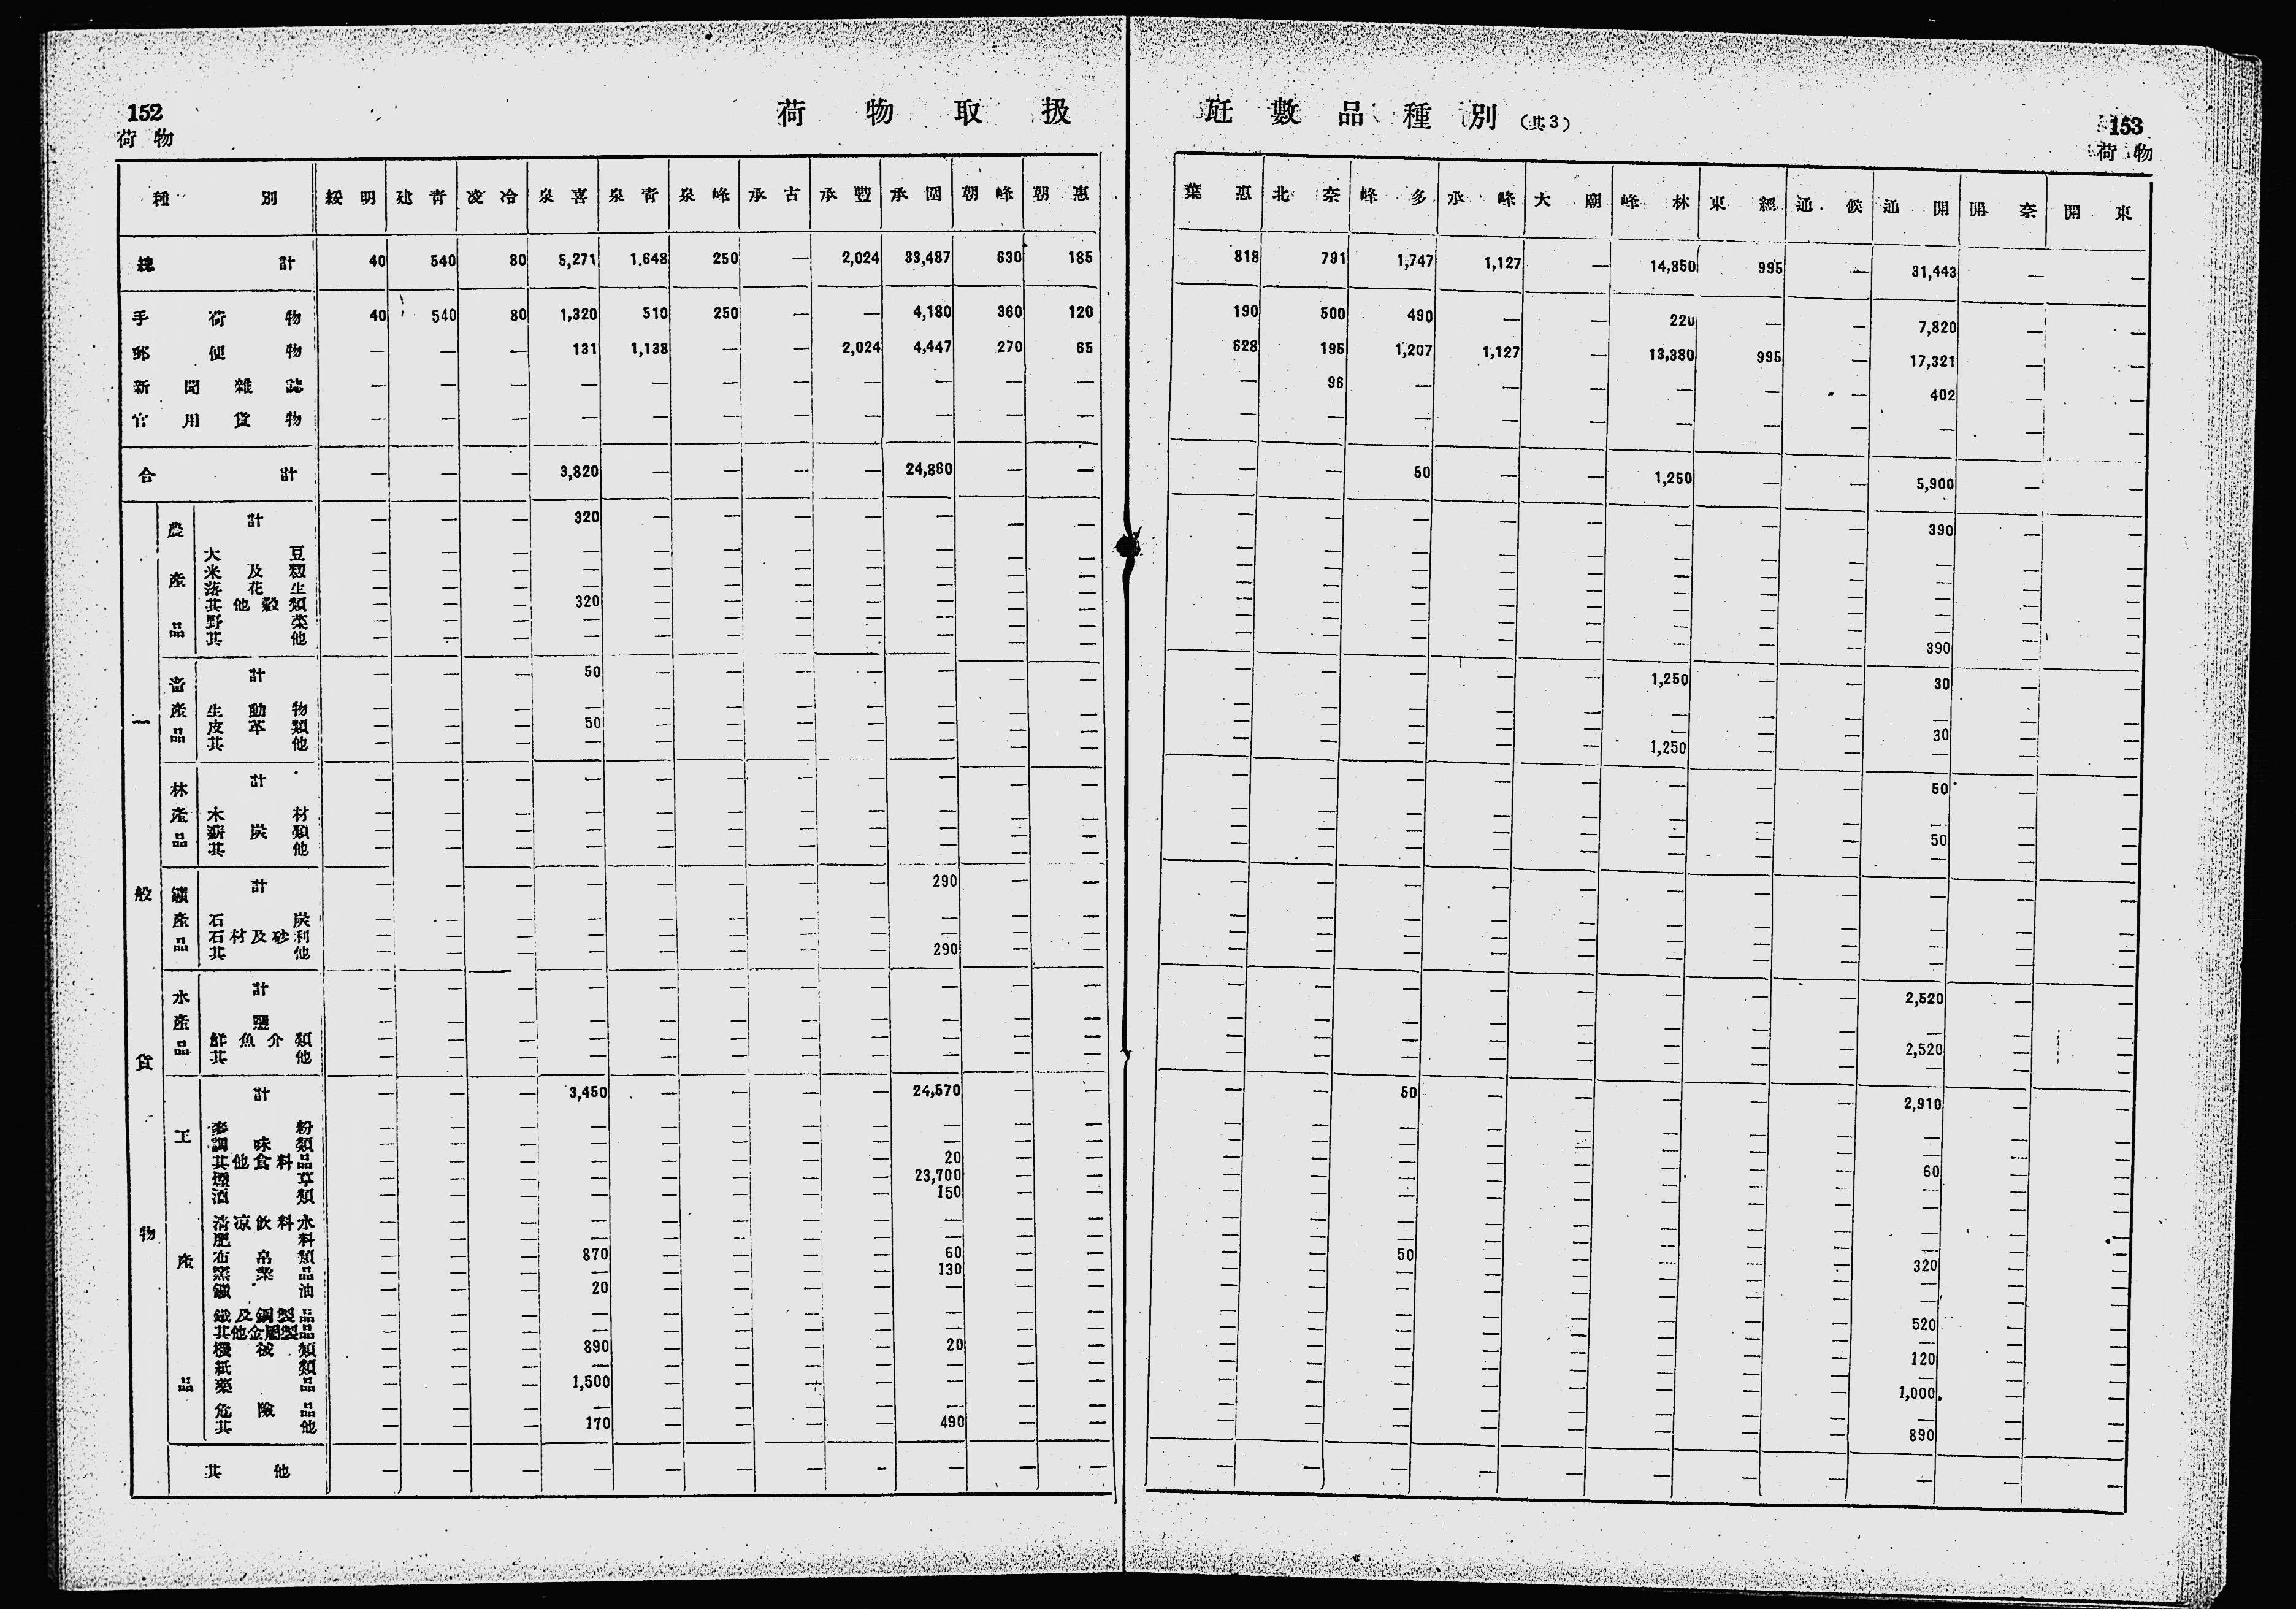 152
荷物
荷物取扱
瓩數品種別(其3)
153
荷物
種別 綏明 建青 凌冷 泉喜 泉青 泉峰 承古 承豐 承圍 朝峰 朝惠 葉惠 北奈 峰多 承峰 大廟 峰林 東經 通候 通開 開奈 開東
總計 40 540 80 5,271 1,648 250 — 2,024 33,487 630 185 818 791 1,747 1,127 — 14,850 995 — 31,443 — —
手荷物 40 540 80 1,320 510 250 — — 4,180 360 120 190 500 490 — — 220 — — 7,820 — —
郵便物 — — — 131 1,138 — — 2,024 4,447 270 65 628 195 1,207 1,127 — 13,380 995 — 17,321 — —
新聞雜誌 — — — — — — — — — — — — 96 — — — — — — 402 — —
官用貨物 — — — — — — — — — — — — — — — — — — — — — —
合計 — — — 3,820 — — — — 24,860 — — — — 50 — — 1,250 — — 5,900 — —
一般貨物
農產品
計 — — — 320 — — — — — — — — — — — — — — — 390 — —
大豆 — — — — — — — — — — — — — — — — — — — — — —
米及籾 — — — — — — — — — — — — — — — — — — — — — —
落花生 — — — — — — — — — — — — — — — — — — — — — —
其他穀類 — — — 320 — — — — — — — — — — — — — — — — — —
野菜 — — — — — — — — — — — — — — — — — — — — — —
其他 — — — — — — — — — — — — — — — — — — — 390 — —
畜產品
計 — — — 50 — — — — — — — — — — — — 1,250 — — 30 — —
生動物 — — — — — — — — — — — — — — — — — — — — — —
皮革類 — — — 50 — — — — — — — — — — — — — — — 30 — —
其他 — — — — — — — — — — — — — — — — 1,250 — — — — —
林產品
計 — — — — — — — — — — — — — — — — — — — 50 — —
木材 — — — — — — — — — — — — — — — — — — — — — —
薪炭類 — — — — — — — — — — — — — — — — — — — 50 — —
其他 — — — — — — — — — — — — — — — — — — — — — —
鑛產品
計 — — — — — — — — 290 — — — — — — — — — — — — —
石炭 — — — — — — — — — — — — — — — — — — — — — —
石材及砂利 — — — — — — — — — — — — — — — — — — — — — —
其他 — — — — — — — — 290 — — — — — — — — — — — — —
水產品
計 — — — — — — — — — — — — — — — — — — — 2,520 — —
鹽 — — — — — — — — — — — — — — — — — — — — — —
鮮魚介類 — — — — — — — — — — — — — — — — — — — 2,520 — —
其他 — — — — — — — — — — — — — — — — — — — — — —
工產品
計 — — — 3,450 — — — — 24,570 — — — — 50 — — — — — 2,910 — —
麥粉 — — — — — — — — — — — — — — — — — — — — — —
調味類 — — — — — — — — — — — — — — — — — — — — — —
其他食料品 — — — — — — — — 20 — — — — — — — — — — 60 — —
煙草 — — — — — — — — 23,700 — — — — — — — — — — — — —
酒類 — — — — — — — — 150 — — — — — — — — — — — — —
淸凉飮料水 — — — — — — — — — — — — — — — — — — — — — —
肥料 — — — — — — — — — — — — — — — — — — — — — —
布帛類 — — — 870 — — — — 60 — — — — 50 — — — — — 320 — —
窯業品 — — — — — — — — 130 — — — — — — — — — — — — —
鑛油 — — — 20 — — — — — — — — — — — — — — — — — —
鐵及鋼製品 — — — — — — — — — — — — — — — — — — — 520 — —
其他金屬製品 — — — — — — — — — — — — — — — — — — — — — —
機械類 — — — 890 — — — — 20 — — — — — — — — — — 120 — —
紙類 — — — — — — — — — — — — — — — — — — — — — —
藥品 — — — 1,500 — — — — — — — — — — — — — — — 1,000 — —
危險品 — — — — — — — — — — — — — — — — — — — — — —
其他 — — — 170 — — — — 490 — — — — — — — — — — 890 — —
其他 — — — — — — — — — — — — — — — — — — — — — —